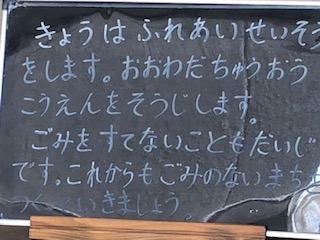 きょうはふれあいせいそう
をします。おおわだちゅうおう
こうえんをそうじします。
ごみをすてないこともだいじ
です。これからもごみのないまち
いきましょう。